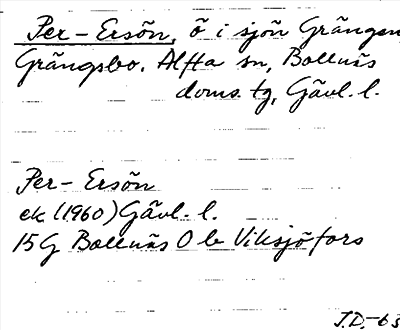 Per-Ersön, ö i sjön Grängen,
Grängsbo. Alfta sn, Bollnäs
doms. tg, Gävl. l.
Per-Ersön
ek (1960) Gävl. l.
15G Bollnäs 0 b Viksjöfors
J.D.-63